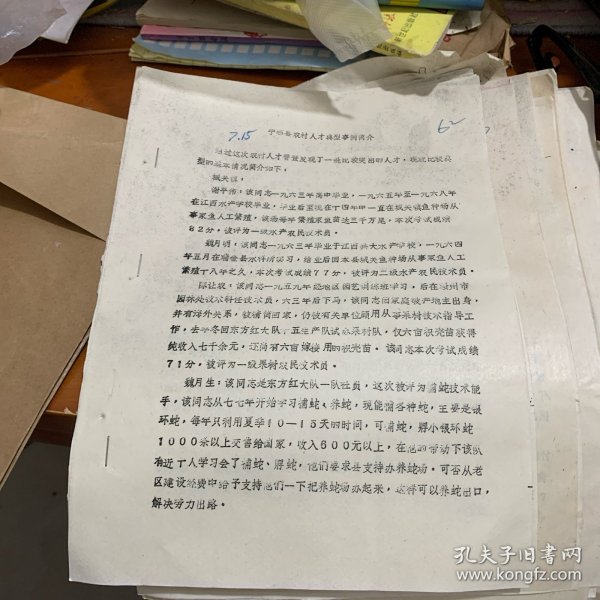 7.15
62
宁都县农村人才典型事例简介
通过这次农村人才普查发现了一些比较突出的人才，现将比较典
型的基本情况简介如下：
城关镇：
谢平伟：该同志一九六三年高中毕业，一九六五年至一九六八年
在江西水产学校毕业，毕业后至现在十四年中一直在城关镇鱼种场从
事家鱼人工繁殖，该场每年繁殖家鱼苗达三千万尾，本次考试成绩
82分，被评为一级水产农民技术员。
魏月明：该同志一九六三年毕业于江西共大水产学校，一九六四
年五月在瑞金县水科所实习，结业后回本县城关鱼种场从事家鱼人工
繁殖十八年之久，本次考试成绩77分，被评为二级水产农民技术员。
该同志一九五九年经地区园艺训练班学习，后在赣州市
园林处技术科任技术员，六三年后下马，该同志因家庭破产地主出身，
并有海外关系，被清洗回家，仍被有关单位顾用从事果树技术指导工
作，去年冬回东方红大队，五生产队试办果树队，仅六亩枳壳苗获得
纯收入七千余元，还尚有六亩嫁接用的枳壳苗。该同志本次考试成绩
71分，被评为一级果树农民技术员。
魏月生：该同志是东方红大队一队社员，这次被评为捕蛇技术能
手，该同志从七七年开始学习捕蛇、养蛇，现能捕各种蛇，主要是银
环蛇，每年只利用夏季10—15天的时间，可捕蛇，孵小银环蛇
1000条以上交售给国家，收入600元以上，在他的带动下该队
有近十人学习会了捕蛇、孵蛇，他们要求县支持办养蛇场，可否从老
区建设经费中给予支持他们一下把养蛇场办起来，这样可以养蛇出口，
解决劳力出路。
孔夫子旧书网
www.kongfz.com